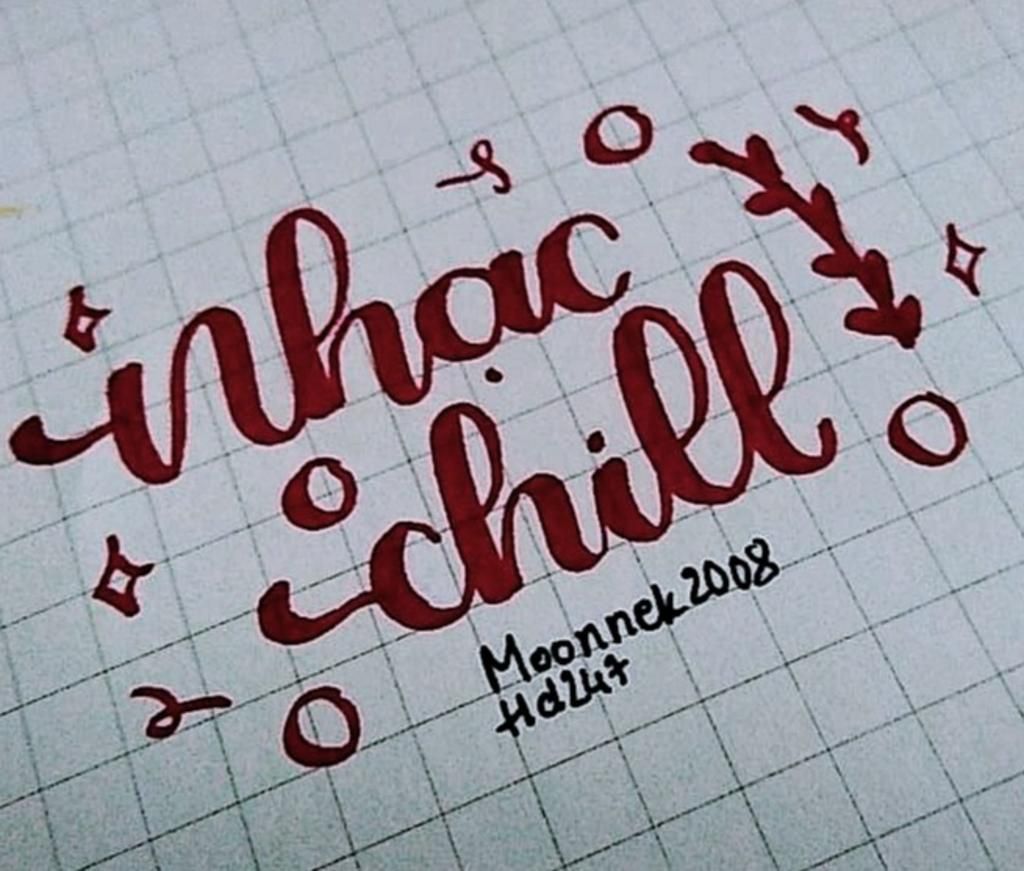 nhạc
chill
Moonnek2008
Hd247